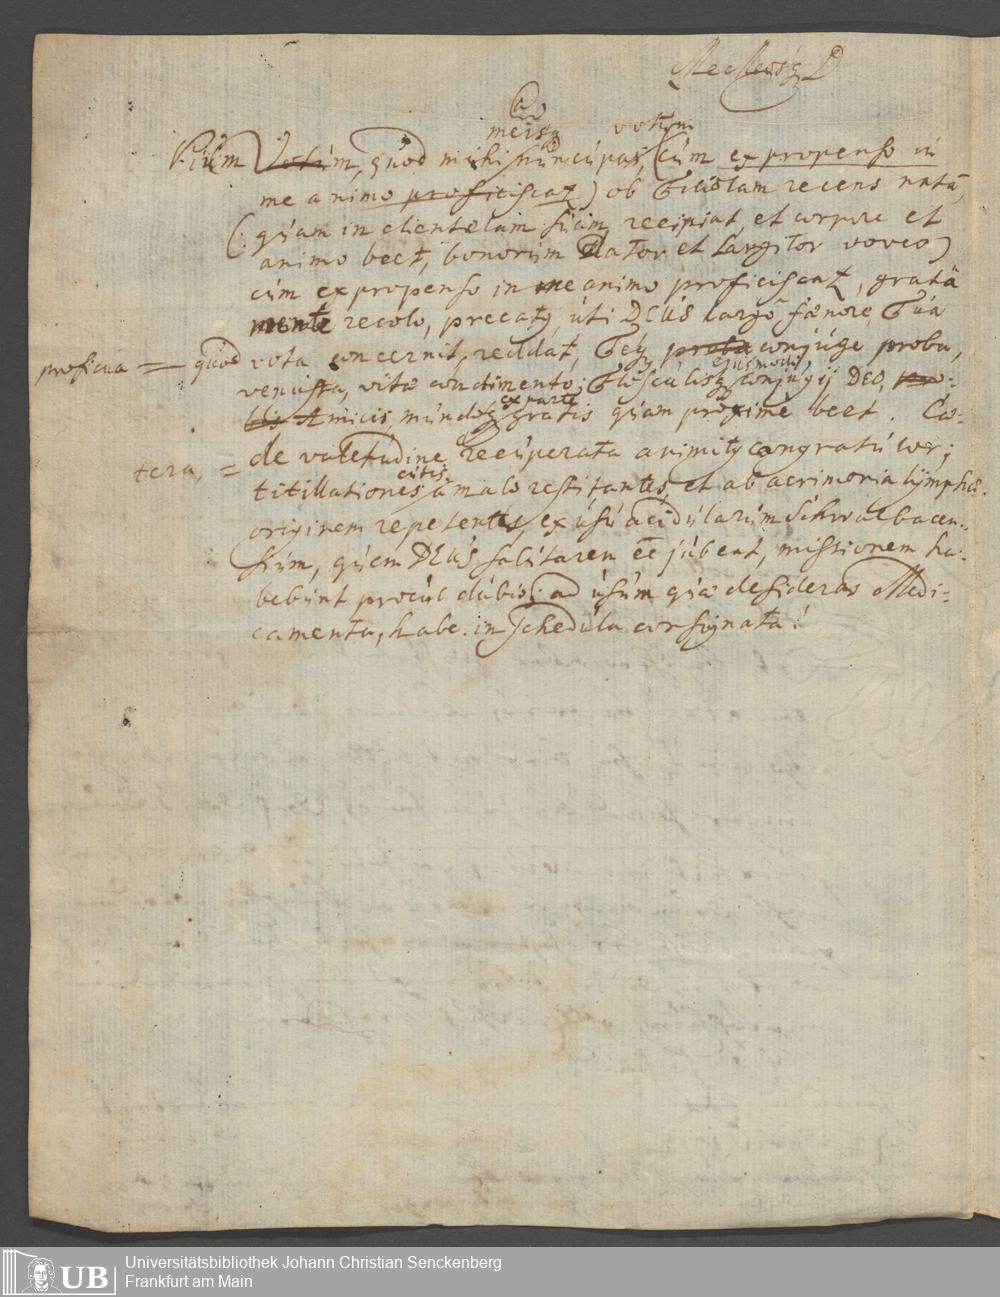 a)
meisq votum
Pium Votum, quod mihi nuncupas, (cum ex propenso in
me animo proficiscat) ob Filiolam recens natã,
(: quam in clientelam suam recipiat, et corpore et
animo beet, bonorum Dator et Largitor voveo)
cum ex propenso in me animo proficiscat, gratâ
mente recolo, precatq, uti DEUS largo fœnore, Tua
proficua = quod vota concernit, reddat, Teq proba conjuge proba,
venusta, vitæ condimento, Flosculisq ejusmodi conjugij DEO, pro-
bis Amicis, mundoq ex parte gratis quam proxime beet. Cæ-
tera, = de valetudine recuperata animitq congratulor;
titillationes cutis, â malo restitantes, et ab acrimonia lymphæ
originem repetentes, ex usu acidularum Schwalbacen-
sium, quem DEUS salutarem eẽ jubeat, missionem ha-
bebunt procul dubio: ad usum quæ desideras Medi-
camenta, habe in schedula consignata!
Universitätsbibliothek Johann Christian Senckenberg
Frankfurt am Main
UB